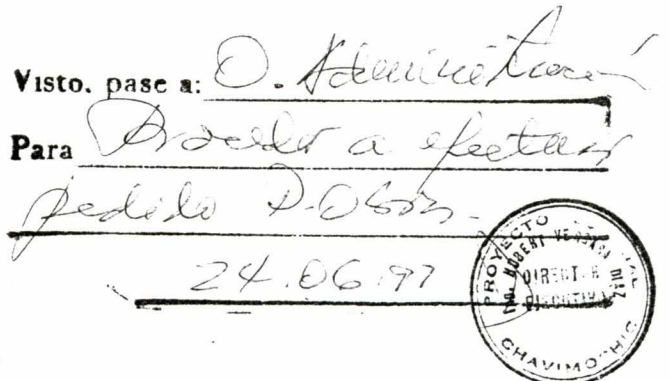 Visto. pase a: O. Administración
Para Proceder a efectuar
pedido D. Obras.
24.06.97
PROYECTO ESPECIAL
CHAVIMOCHIC
ING. ROBERT VERGARA DIAZ
DIRECTOR
EJECUTIVO